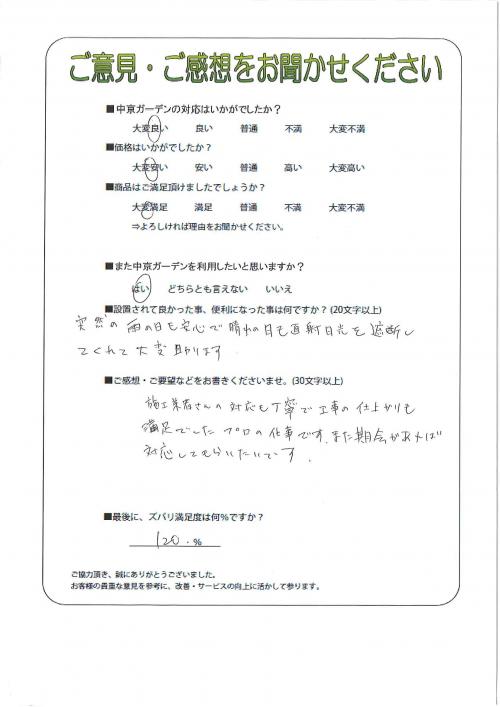 ご意見・ご感想をお聞かせください
■中京ガーデンの対応はいかがでしたか？
大変良い 良い 普通 不満 大変不満
■価格はいかがでしたか？
大変安い 安い 普通 高い 大変高い
■商品はご満足頂けましたでしょうか？
大変満足 満足 普通 不満 大変不満
⇒よろしければ理由をお聞かせください。
■また中京ガーデンを利用したいと思いますか？
はい どちらとも言えない いいえ
■設置されて良かった事、便利になった事は何ですか？(20文字以上)
突然の雨の日も安心で晴れの日も直射日光を遮断し
てくれて大変助ります
■ご感想・ご要望などをお書きくださいませ。(30文字以上)
施工業者さんの対応も丁寧で工事の仕上がりも
満足でした プロの仕事です。また機会があれば
対応してもらいたいです。
■最後に、ズバリ満足度は何%ですか？
120.%
ご協力頂き、誠にありがとうございました。
お客様の貴重な意見を参考に、改善・サービスの向上に活かして参ります。